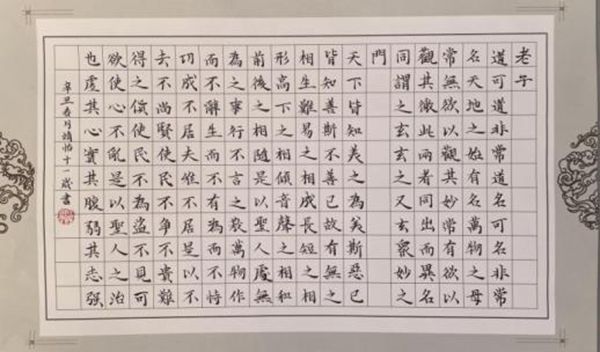 老子
道可道非常道名可名非常
名天地之始有名萬物之母
常無欲以觀其妙常有欲以
觀其徼此兩者同出而異名
同謂之玄玄之又玄眾妙之
門
天下皆知美之為美斯惡已
皆知善斯不善已故有無之
相生難易之相成長短之相
形高下之相傾音聲之相和
前後之相隨是以聖人處無
為之事行不言之教萬物作
而不辭生而不有為而不恃
功成不居夫惟不居是以不
去不尚賢使民不爭不貴難
得之貨使民不為盜不見可
欲使心不亂是以聖人之治
也虛其心實其腹弱其志强
辛丑春月靖怡十一歲書